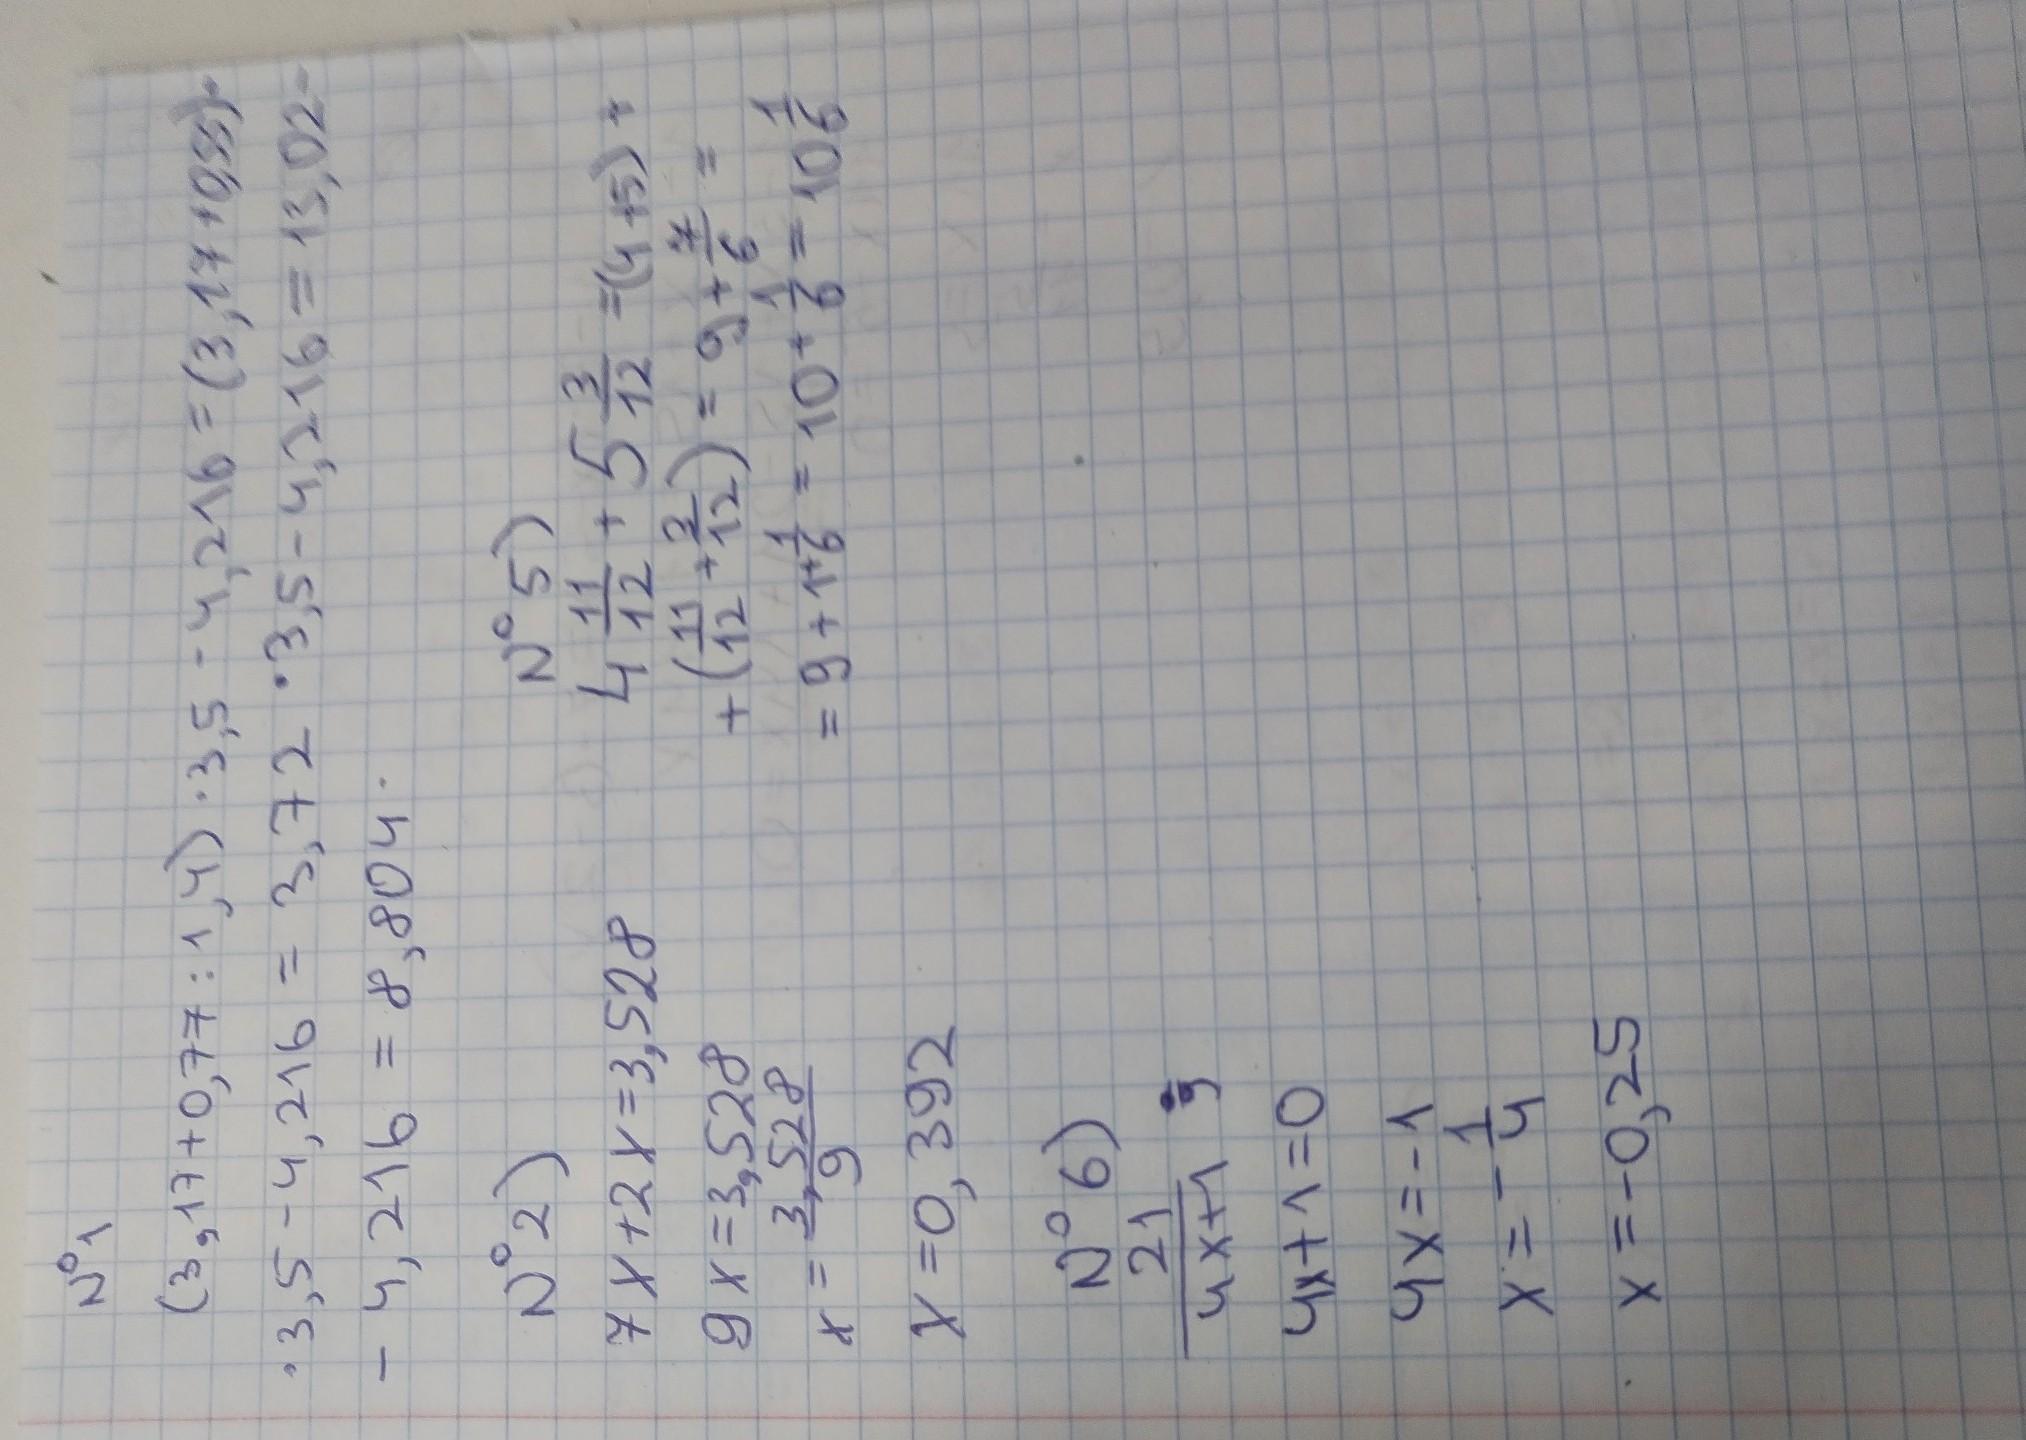 N°1
(3,17+0,77:1,4)·3,5-4,216=(3,17+0,55)·
·3,5-4,216=3,72·3,5-4,216=13,02-
-4,216=8,804.
N°2)
7x+2x=3,528
9x=3,528
x=3,528/9
x=0,392
N°5)
4 11/12+5 3/12=(4+5)+
+(11/12+3/12)=9+7/6=
=9+1+1/6=10+1/6=10 1/6
N°6)
21/4x+1;
4x+1=0
4x=-1
x=-1/4
x=-0,25